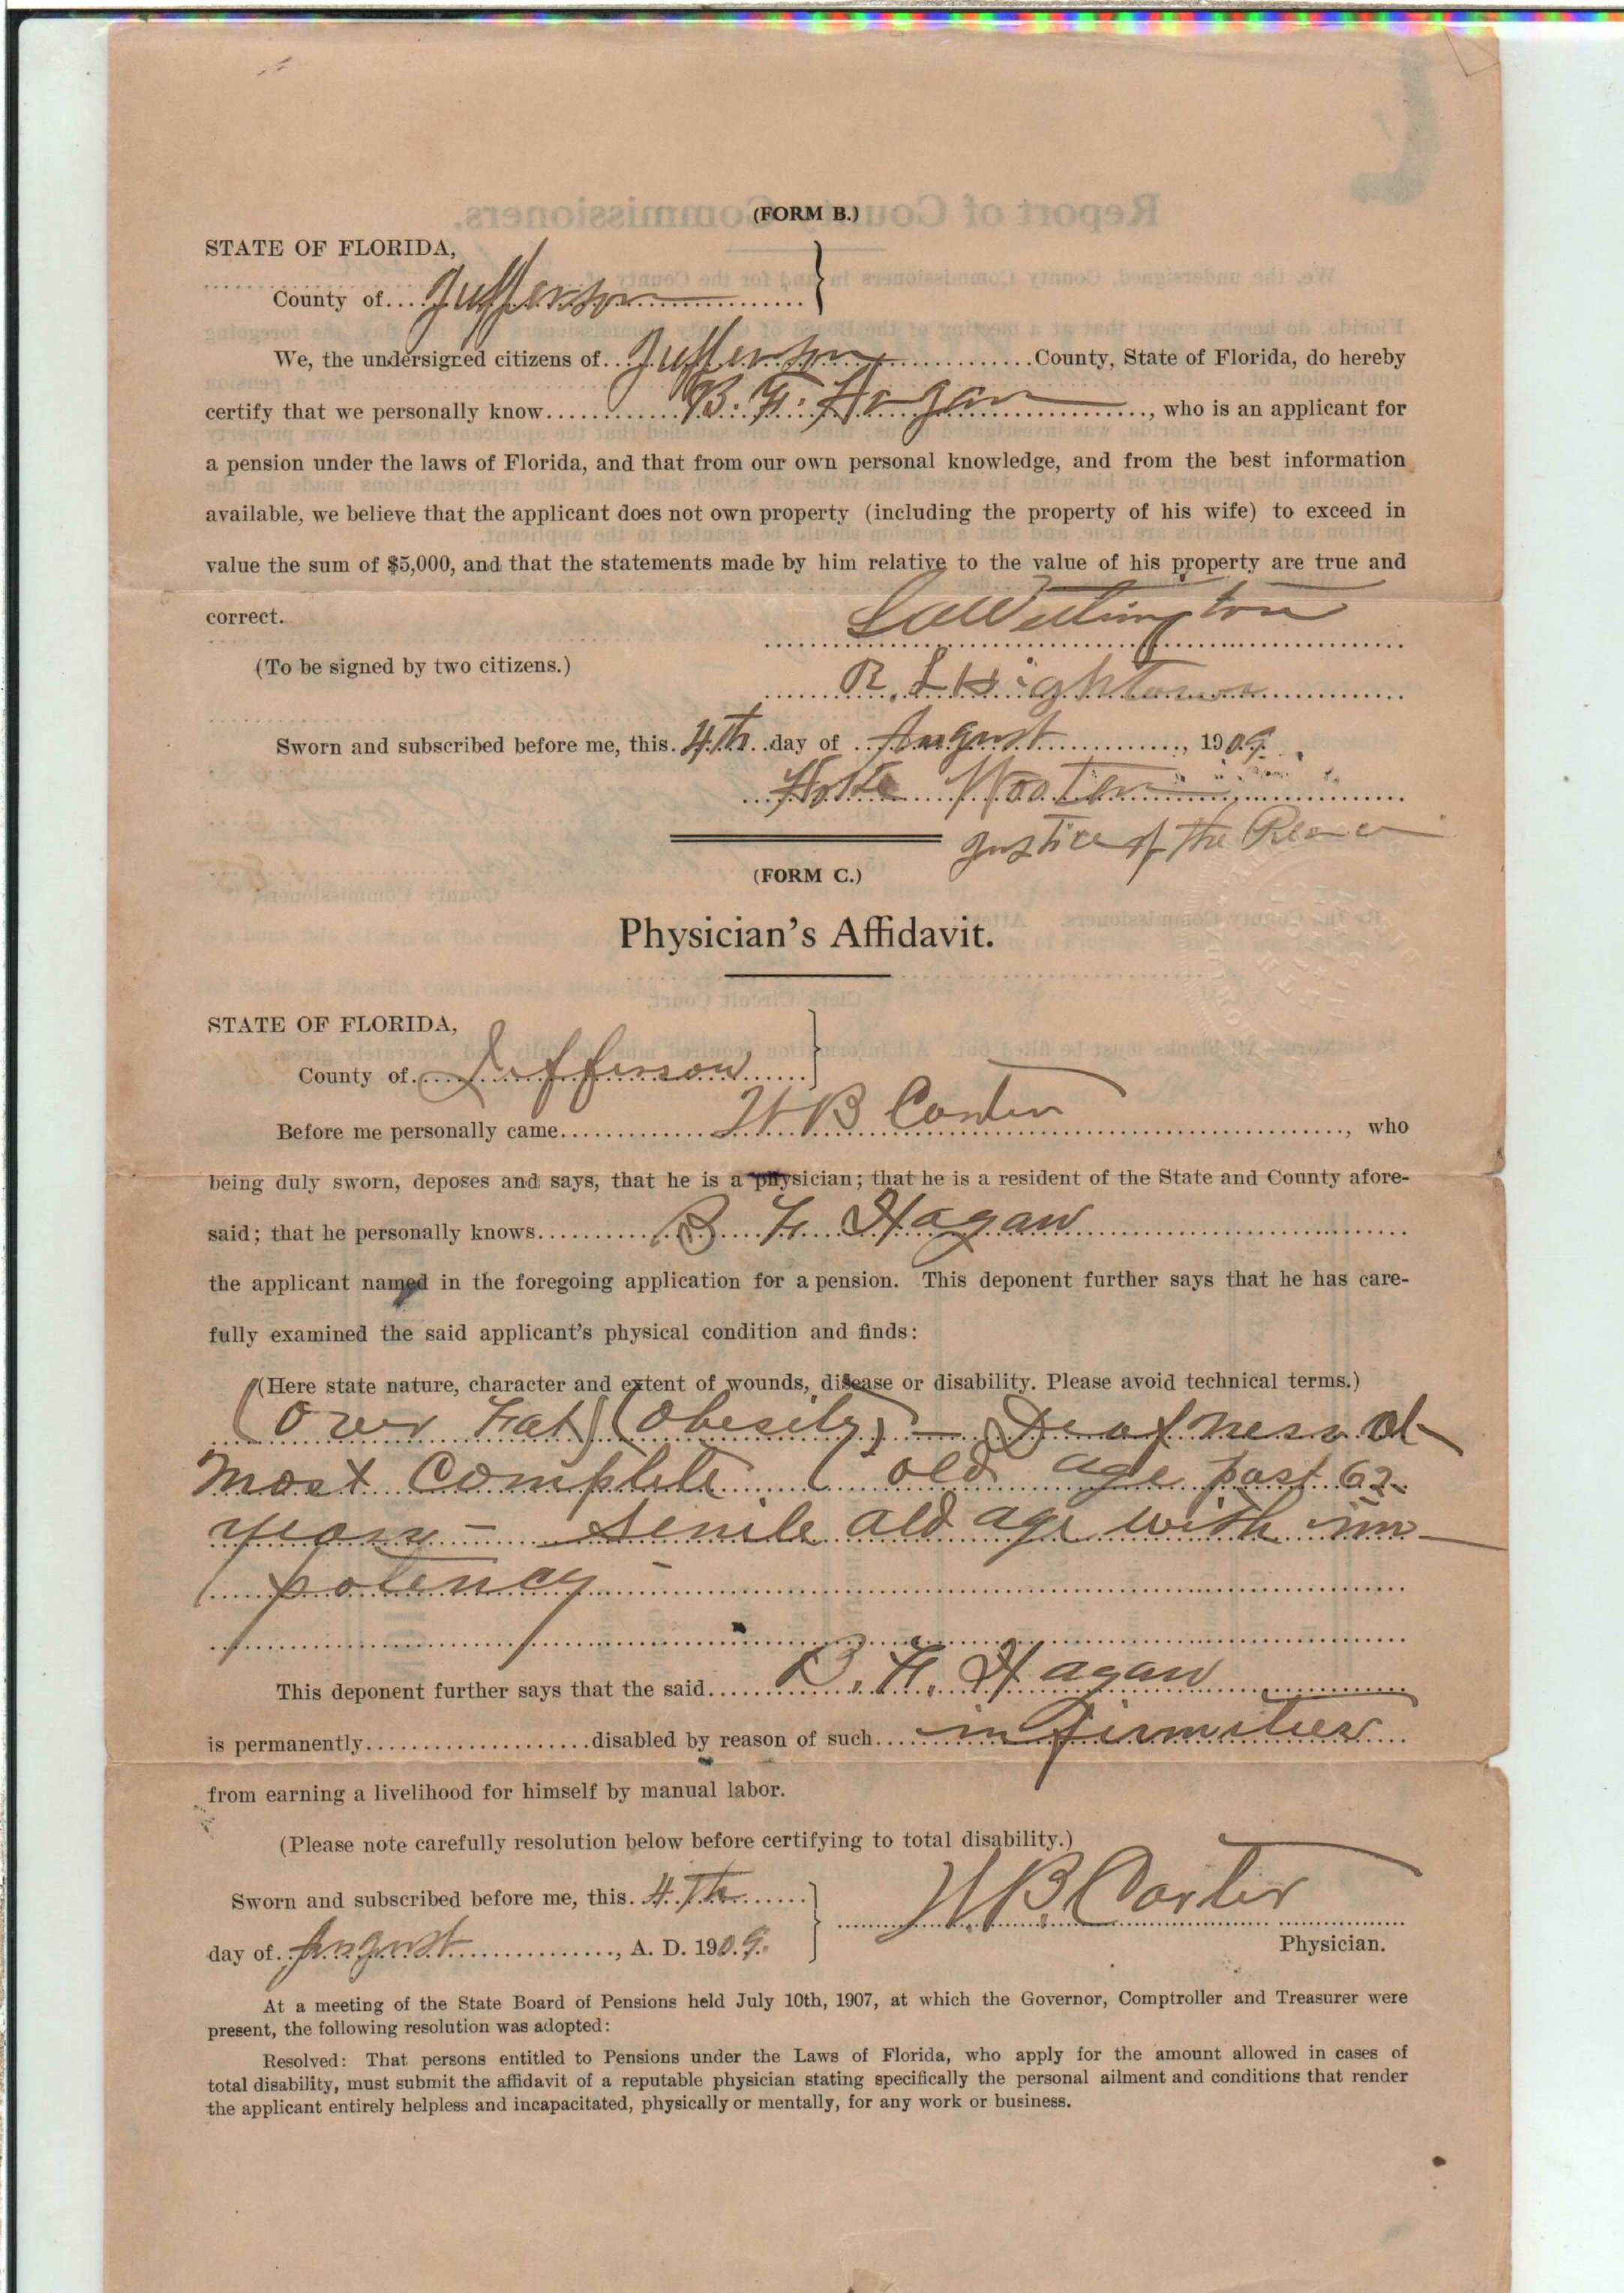 (FORM B.)
STATE OF FLORIDA,
County of Jefferson
We, the undersigned citizens of Jefferson County, State of Florida, do hereby
certify that we personally know B. F. Hogan, who is an applicant for
a pension under the laws of Florida, and that from our own personal knowledge, and from the best information
available, we believe that the applicant does not own property (including the property of his wife) to exceed in
value the sum of $5,000, and that the statements made by him relative to the value of his property are true and
correct.
(To be signed by two citizens.)
R. L. Hightower
Sworn and subscribed before me, this 4th day of August, 1909.
Wooten
Justice of the Peace
(FORM C.)
Physician's Affidavit.
STATE OF FLORIDA,
County of Jefferson
Before me personally came B Carter, who
being duly sworn, deposes and says, that he is a physician; that he is a resident of the State and County afore-
said; that he personally knows B F. Hagan
the applicant named in the foregoing application for a pension. This deponent further says that he has care-
fully examined the said applicant's physical condition and finds:
(Here state nature, character and extent of wounds, disease or disability. Please avoid technical terms.)
(Over Fat) (Obesity) - Deafness al-
most Complete. old age past 62
years - Senile old age with im-
potency -
This deponent further says that the said B. F. Hagan
is permanently disabled by reason of such infirmities
from earning a livelihood for himself by manual labor.
(Please note carefully resolution below before certifying to total disability.)
Sworn and subscribed before me, this 4th
day of August, A. D. 1909.
B Carter
Physician.
At a meeting of the State Board of Pensions held July 10th, 1907, at which the Governor, Comptroller and Treasurer were
present, the following resolution was adopted:
Resolved: That persons entitled to Pensions under the Laws of Florida, who apply for the amount allowed in cases of
total disability, must submit the affidavit of a reputable physician stating specifically the personal ailment and conditions that render
the applicant entirely helpless and incapacitated, physically or mentally, for any work or business.